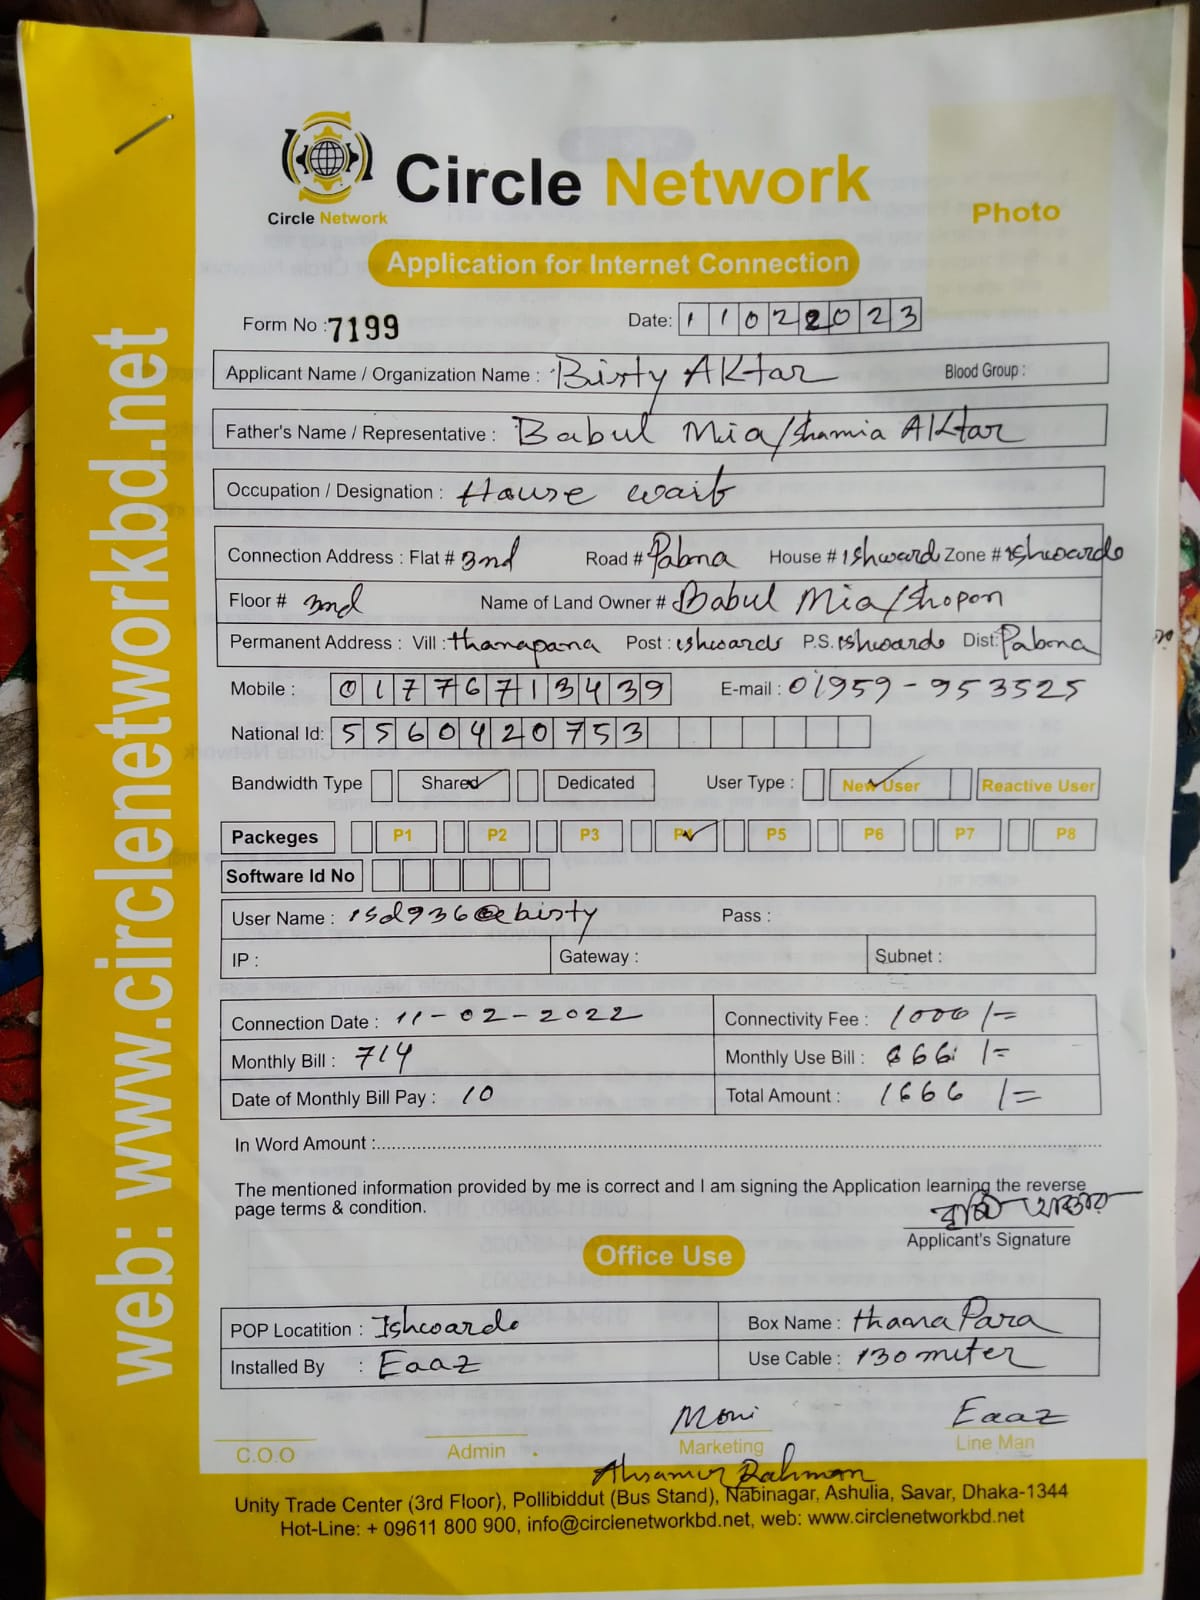 web: www.circlenetworkbd.net
Circle Network
Circle Network
Photo
Application for Internet Connection
Form No : 7199 Date: 11022023
Applicant Name / Organization Name : Birty AKtar Blood Group :
Father's Name / Representative : Babul Mia/Shamia AKtar
Occupation / Designation : House waif
Connection Address : Flat # 3nd Road # Pabna House # Ishward Zone # Ishwardo
Floor # 3nd Name of Land Owner # Babul Mia/Shopon
Permanent Address : Vill : thanapana Post : Ishwards P.S. Ishwardo Dist: Pabna
Mobile : 01776713439 E-mail : 01959-953525
National Id: 5560420753
Bandwidth Type Shared Dedicated User Type : New User Reactive User
Packeges P1 P2 P3 P4 P5 P6 P7 P8
Software Id No
User Name : isd936@birty Pass :
IP : Gateway : Subnet :
Connection Date : 11-02-2022 Connectivity Fee : 1000/=
Monthly Bill : 714 Monthly Use Bill : 666 /=
Date of Monthly Bill Pay : 10 Total Amount : 1666 /=
In Word Amount :
The mentioned information provided by me is correct and I am signing the Application learning the reverse
page terms & condition.
Applicant's Signature
Office Use
POP Locatition : Ishwardo Box Name : thana Para
Installed By : Eaaz Use Cable : 130 miter
Moni Eaaz
C.O.O Admin Marketing Line Man
Ahsanur Rahman
Unity Trade Center (3rd Floor), Pollibiddut (Bus Stand), Nabinagar, Ashulia, Savar, Dhaka-1344
Hot-Line: + 09611 800 900, info@circlenetworkbd.net, web: www.circlenetworkbd.net